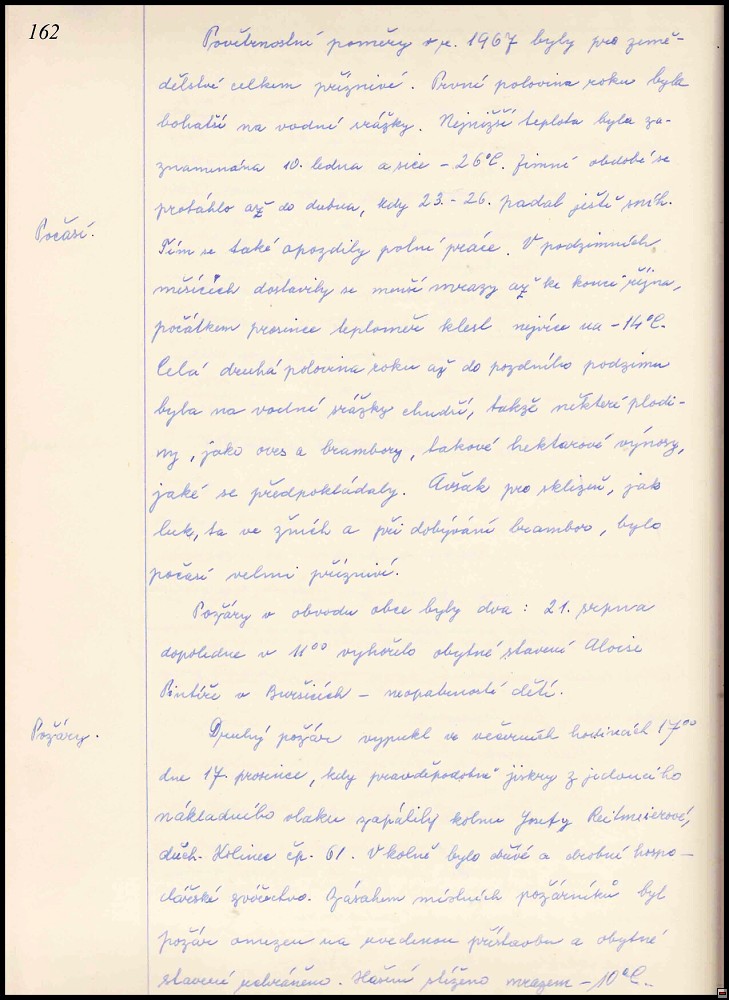 162
Povětrnostní poměry v r. 1967 byly pro země-
dělství celkem příznivé. První polovina roku byla
bohatší na vodní srážky. Nejnižší teplota byla za-
znamenána 10. ledna a sice -26°C. Zimní období se
protáhlo až do dubna, kdy 23.-26. padal ještě sníh.
Počasí.
Tím se také opozdily polní práce. V podzimních
měsících dostavily se menší mrazy až ke konci října,
počátkem prosince teploměr klesl nejvíce na -14°C.
Celá druhá polovina roku až do pozdního podzimu
byla na vodní srážky chudší, takže některé plodi-
ny, jako oves a brambory, takové hektarové výnosy,
jaké se předpokládaly. Avšak pro sklizeň, jak
luk, ta ve žních a při dobývání brambor, bylo
počasí velmi příznivé.
Požáry v obvodu obce byly dva: 21. srpna
dopoledne v 11⁰⁰ vyhořelo obytné stavení Aloise
Pintíře v Buršicích - neopatrností dětí.
Požáry.
Druhý požár vypukl ve večerních hodinách 17⁰⁰
dne 17. prosince, kdy pravděpodobně jiskry z jedoucího
nákladního vlaku zapálily kolnu Josefy Reitmeierové,
důch. Kolinec čp. 61. V kolně bylo dříví a drobné hospo-
dářské zvířectvo. Zásahem místních požárníků byl
požár omezen na uvedenou přístavbu a obytné
stavení uchráněno. Hašení stíženo mrazem -10°C.